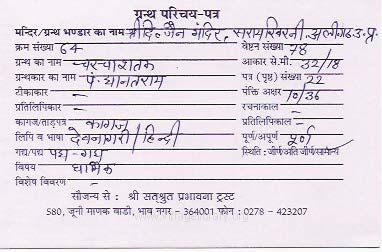 ग्रन्थ परिचय-पत्र
मन्दिर/ग्रन्थ भण्डार का नाम श्री दि. जैन मंदिर, सरायखिरनी, अलीगढ उ.प्र.
क्रम संख्या 64 वेष्टन संख्या 78
ग्रन्थ का नाम चरचाशतक आकार से.मी. 32/18
ग्रन्थकार का नाम पं. द्यानतराय पत्र (पृष्ठ) संख्या 22
टीकाकार - पंक्ति अक्षर 10/36
प्रतिलिपिकार - रचनाकाल -
कागज/ताड़पत्र कागज प्रतिलिपिकाल -
लिपि व भाषा देवनागरी / हिन्दी पूर्ण/अपूर्ण पूर्ण
गद्य/पद्य पद्य-गद्य स्थिति : जीर्ण/अति जीर्ण/सामान्य
विषय धार्मिक
विशेष विवरण -
सौजन्य से : श्री सतश्रुत प्रभावना ट्रस्ट
580, जूनी माणक वाडी, भाव नगर - 364001 फोन : 0278 - 423207